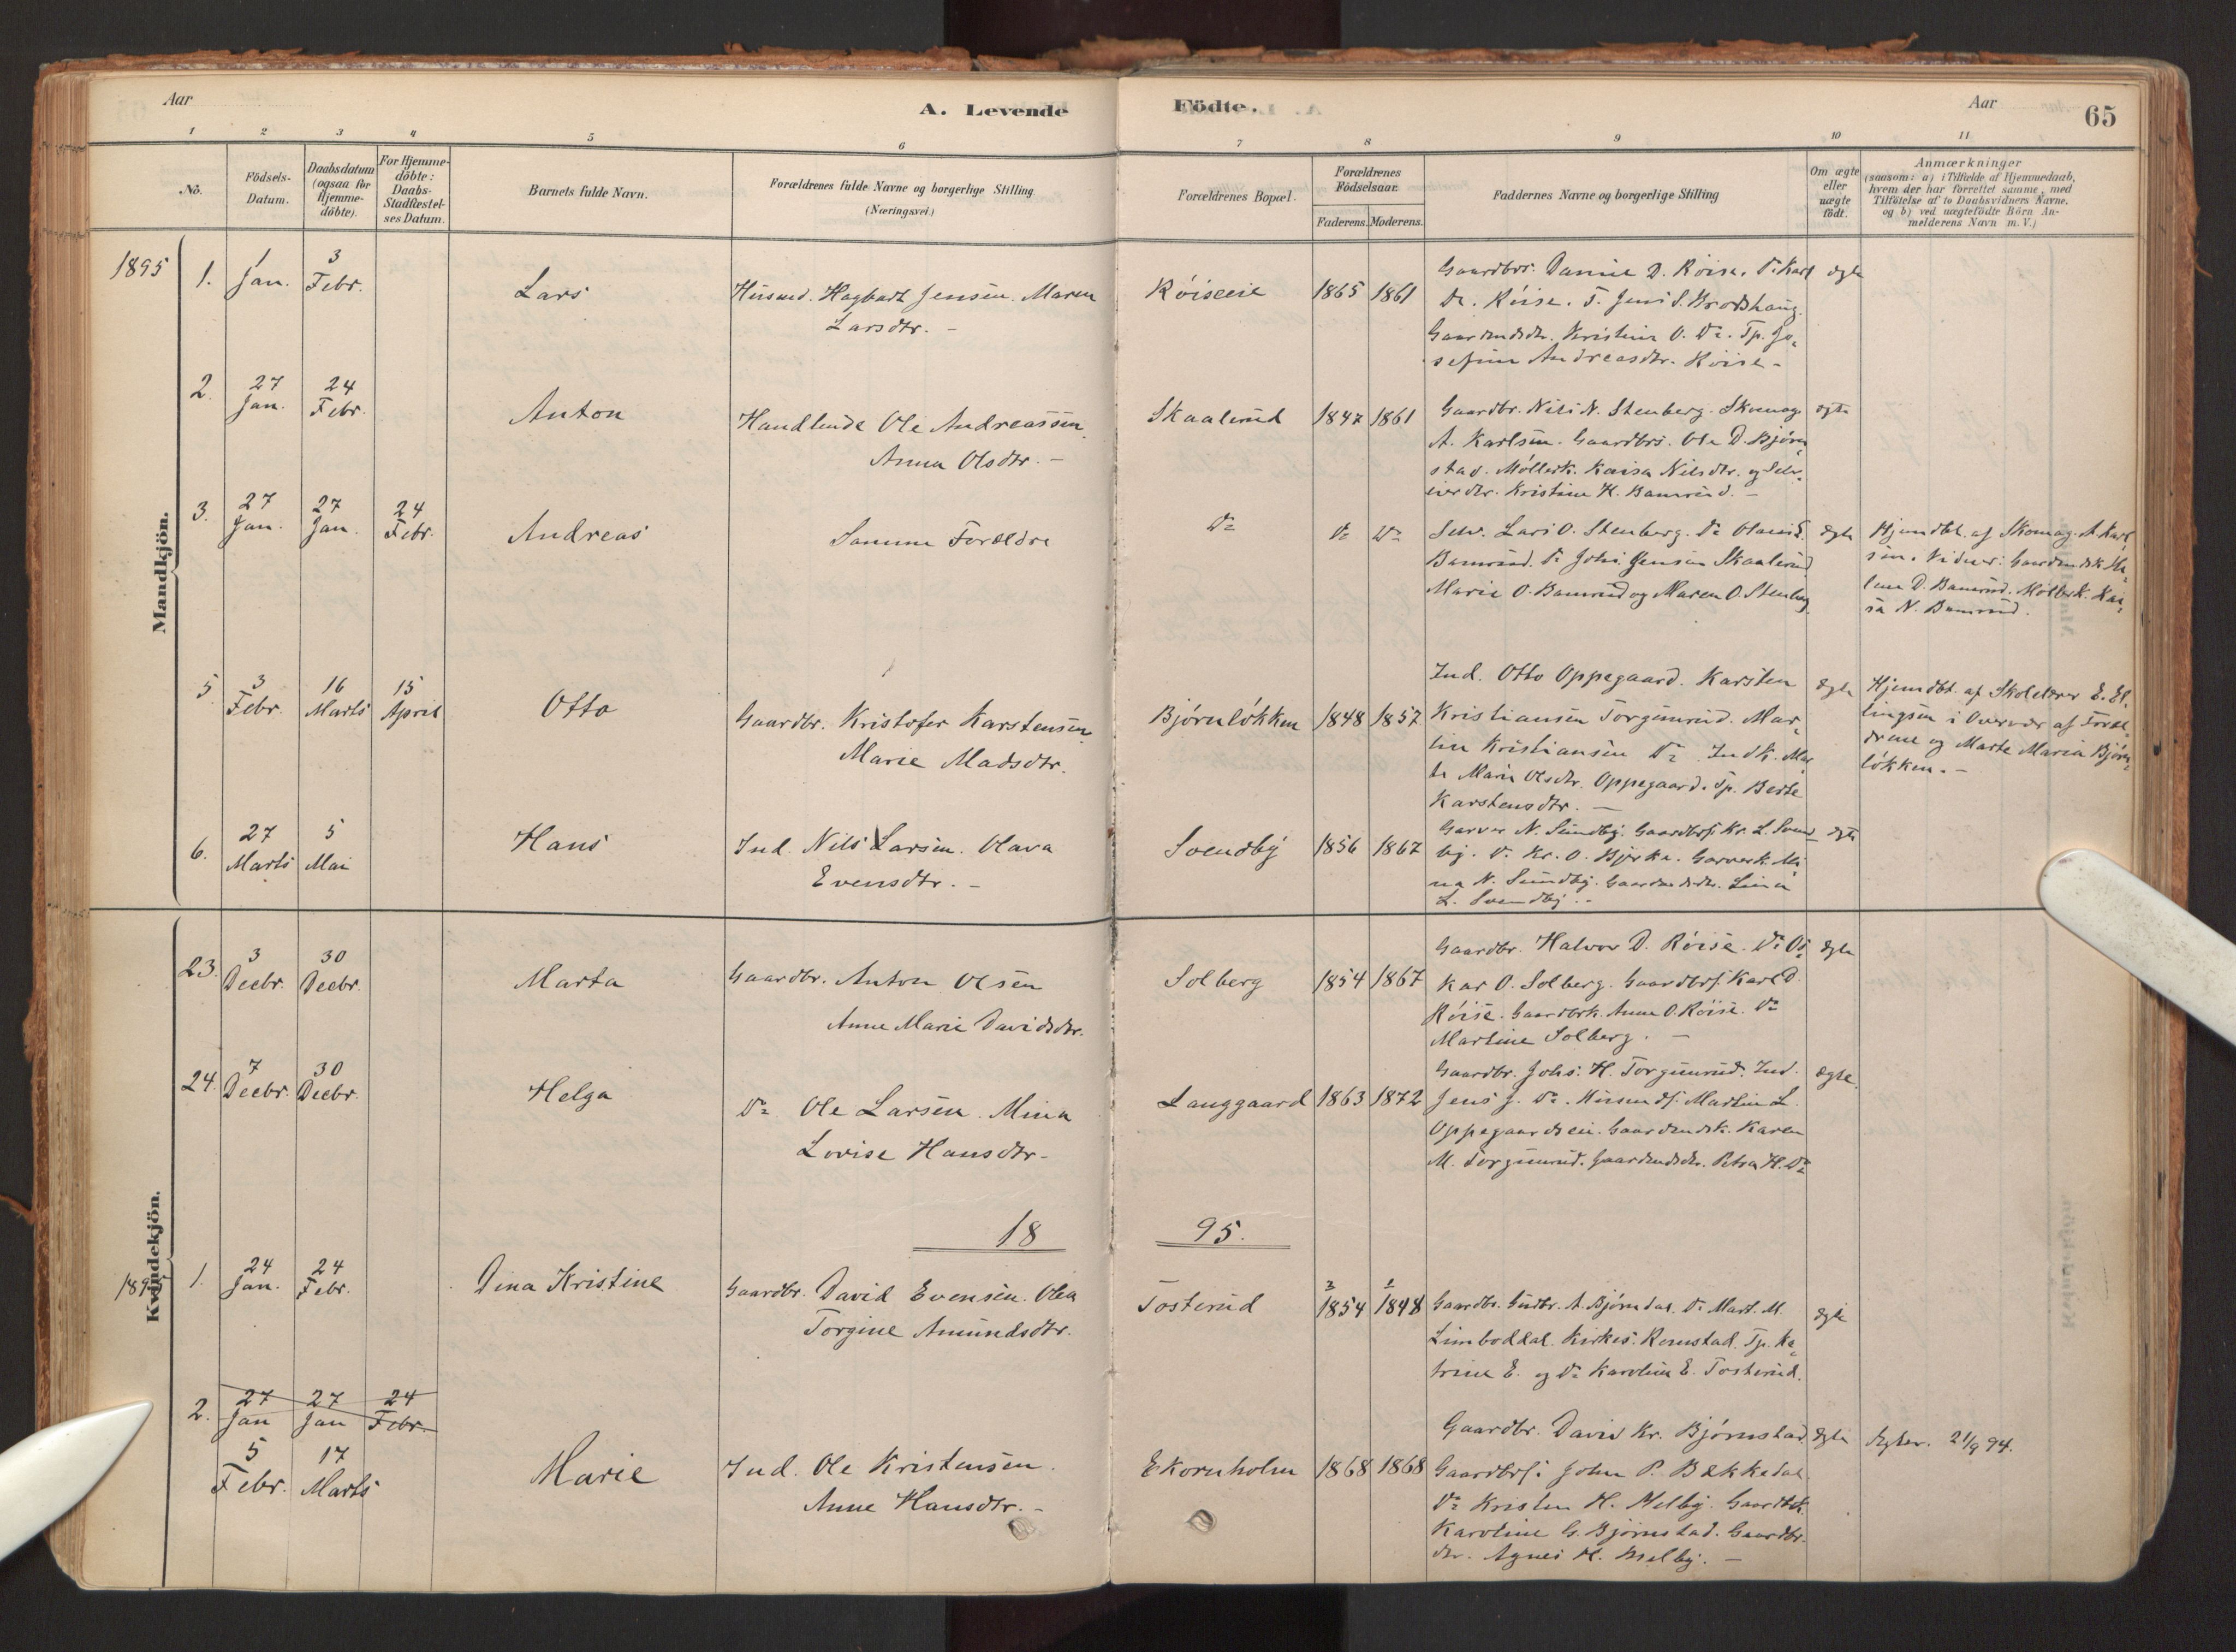 Aar
A. Levende
Födte.
Aar
65
1 2 3 4 5 6 7 8 9 10 11
No.
Födsels-
Datum.
Daabsdatum
(ogsaa for
Hjemme-
döbte).
For Hjemme-
döbte:
Daabs-
Stadfæstel-
ses Datum.
Barnets fulde Navn.
Forældrenes fulde Navne og borgerlige Stilling
(Næringsvei.)
Forældrenes Bopæl.
Forældrenes
Födselsaar.
Faderens. Moderens.
Faddernes Navne og borgerlige Stilling
Om ægte
eller
uægte
födt.
Anmærkninger
(saasom: a) i Tilfælde af Hjemmedaab,
hvem der har forrettet samme, med
Tilföielse af to Daabsvidners Navne,
og b) ved uægtefödte Börn An-
melderens Navn m. V.)
Mandkjön.
1895
1. 1 Jan. 3 Febr.
Lars
Husmd. Hagbart Jensen. Maren
Larsdtr. -
Röiseeie
1865 1861
Gaardbr. Danie D. Röise. Do Karl
D. Röise. T. Jens S. Brodshaug.
Gaardmdsdtr. Kristine O. Do. Tp. Jo-
sefine Andreasdtr. Röise -
ægte
2. 27 Jan. 24 Febr.
Anton
Handlende Ole Andreassen,
Anna Olsdtr. -
Skaalerud
1847 1861
Gaardbr. Nils N. Stenberg. Skomag.
A. Karlsen. Gaardbrs. Ole D. Björn-
stad. Möllerk. Kaisa Nilsdtr. og Selv-
eierdtr. Kristine H. Bamrud. -
ægte
3. 27 Jan. 27 Jan. 24 Febr.
Andreas
Samme Forældre
Do
Do Do
Selv. Lars O. Stenberg. Do
Bamrud. Do Johs. Jensen Skaalerud
Marie O. Bamrud og Maren O. Stenberg
ægte
Hjemdbt. af Skomag. A. Karl-
sen. Vidner: Gaardmdsk. He-
lene D. Bamrud. Möllerk. Kai-
sa N. Bamrud.
5 3 Febr. 16 Marts 15 April
Otto
Gaardbr. Kristofer Karstensen
Marie Madsdtr.
Björnlökken
1848 1857
Ind. Otto Oppegaard. Karsten
Kristiansen Torgunrud. Mar-
tin Kristiansen Do. Indk. Mar-
te Marie Olsdtr. Oppegaard. Tp. Berte
Karstensdtr. -
ægte
Hjemdbt. af Skolelærer E. El-
lingsen i Overvær af Foræl-
drene og Marte Maria Björn-
lökken. -
6. 27 Marts 5 Mai
Hans
Ind. Nils Larsen. Olava
Evensdtr. -
Svendby
1856 1867
Garver N. Sundby. Gaardbrs. Kr. L. Svend-
by. Do Kr. O. Bjerke. Garverk. Mi-
na N. Sundby. Gaardmdsdtr. Lina
L. Svendby. -
ægte
Kvindekjön.
23. 3 Decbr. 30 Decbr.
Marta
Gaardbr. Anton Olsen
Anne Marie Davidsdtr.
Solberg
1854 1867
Gaardbr. Halvor D. Röise. Do Os-
kar O. Solberg. Gaardbrs. Karl D.
Röise. Gaardbrk. Anne O. Röise. Do
Martine Solberg. -
ægte
24. 7 Decbr. 30 Decbr.
Helga
Do Ole Larsen. Mina
Lovise Hansdtr.
Langgaard
1863 1872
Gaardbr. Johs. H. Torgunrud. Ind.
Jens J. Do. Husmds. Martin L.
Oppegaardseie. Gaardmdsk. Karen
M. Torgunrud. Gaardmdsdtr. Petra H. Do
ægte.
18 95.
1895 1. 24 Jan. 24 Febr.
Dina Kristine
Gaardbr. David Evensen. Olea
Torgine Amundsdtr.
Tosterud
3/1854 1/1848
Gaardbr. Gudbr. A. Björndal. Do Mart. M.
Limboddal. Kirkes. Romstad. Tp. Ka-
trine E. og Do Karoline E. Tosterud.
ægte
2. 27 Jan 27 Jan 24 Febr.
5 Febr. 17 Marts
Marie
Ind. Ole Kristensen.
Anne Hansdtr. -
Ekornholm
1868 1868
Gaardbr. David Kr. Björnstad.
Gaardbrs. John P. Bækkedal.
Do Kristen H. Melby. Gaardbrk.
Karoline G. Björnstad. Gaardbr.
dtr. Agnes H. Melby. -
ægte
Ægtev. 21/9 94.